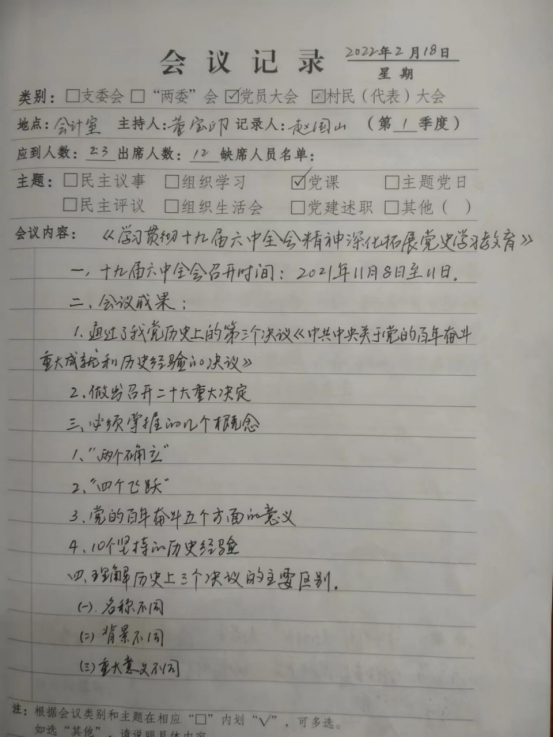 会议记录 2022年2月18日
星期
类别：□支委会 □“两委”会 ☑党员大会 ☑村民（代表）大会
地点：会计室 主持人：董宝印 记录人：赵国山 （第1季度）
应到人数：23 出席人数：12 缺席人员名单：
主题：□民主议事 □组织学习 ☑党课 □主题党日
□民主评议 □组织生活会 □党建述职 □其他（ ）
会议内容：《学习贯彻十九届六中全会精神深化拓展党史学习教育》
一，十九届六中全会召开时间：2021年11月8日至11日．
二．会议成果：
1.通过了我党历史上的第三个决议《中共中央关于党的百年奋斗
重大成就和历史经验的决议》
2.做出召开二十大重大决定
三、必须掌握的几个概念
1、“两个确立”
2、“四个飞跃”
3.党的百年奋斗五个方面的意义
4、10个坚持的历史经验
四、理解历史上三个决议的主要区别．
(一)．名称不同
(二)背景不同
(三)重大意义不同
注：根据会议类别和主题在相应“□”内划“√”，可多选。
如选“其他”，请说明具体内容